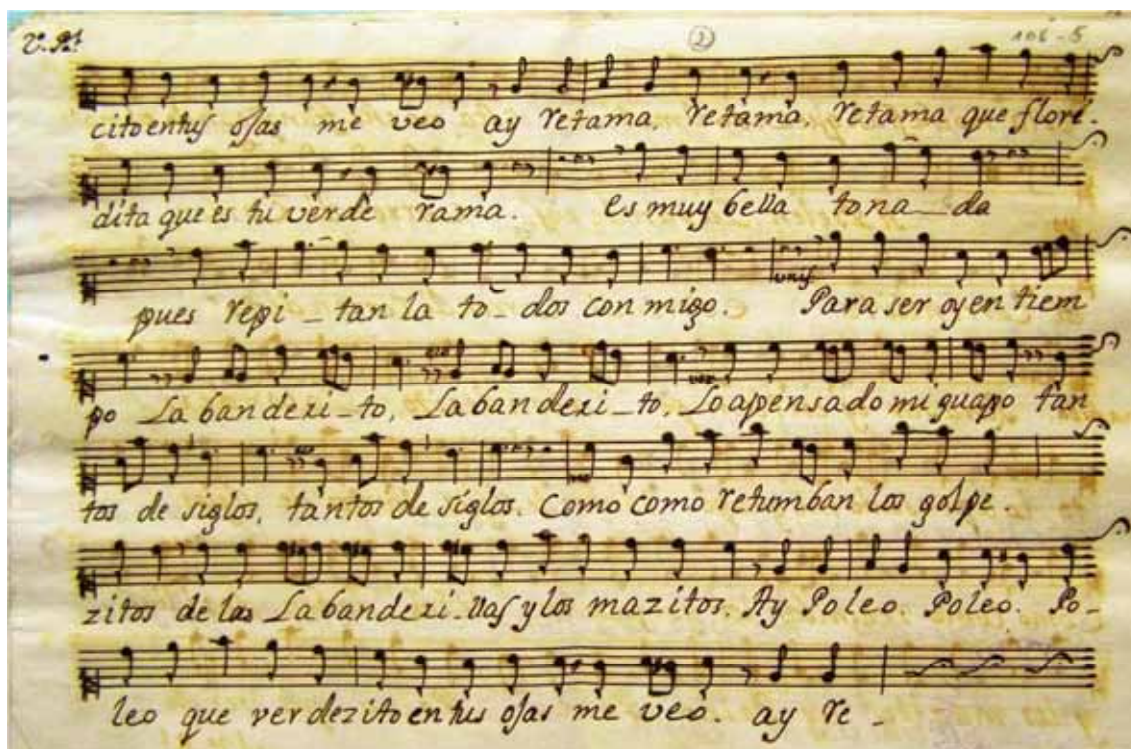 2 106-5
cito entus ojas me veo ay retama, retama, retama que flore.
dita que es tu verde rama. es muy bella tona_da
unis
pues repi_tan la to_dos con migo. Para ser oy en tiem
po La banderi_to, La banderi_to, Lo a pensado mi guapo tan
tos de siglos, tantos de siglos. Como como retumban los golpe.
zitos de las La banderi_llas y los mazitos. Ay Poleo. Poleo. Po_
leo que verdezito en tus ojas me veo. ay re_